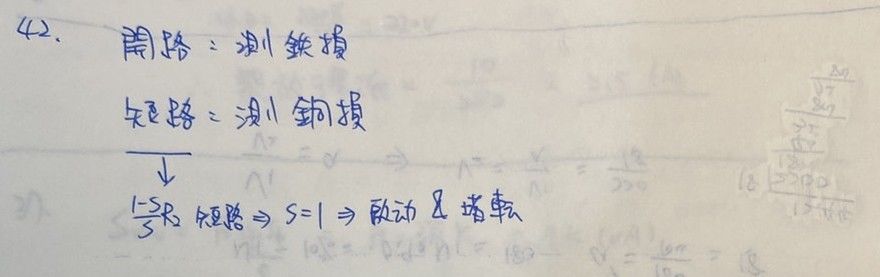 42. 開路：測鉄損
短路：測銅損
↓
\frac{1-S}{S}R₂ 短路 ⇒ S=1 ⇒ 啟动 & 堵転